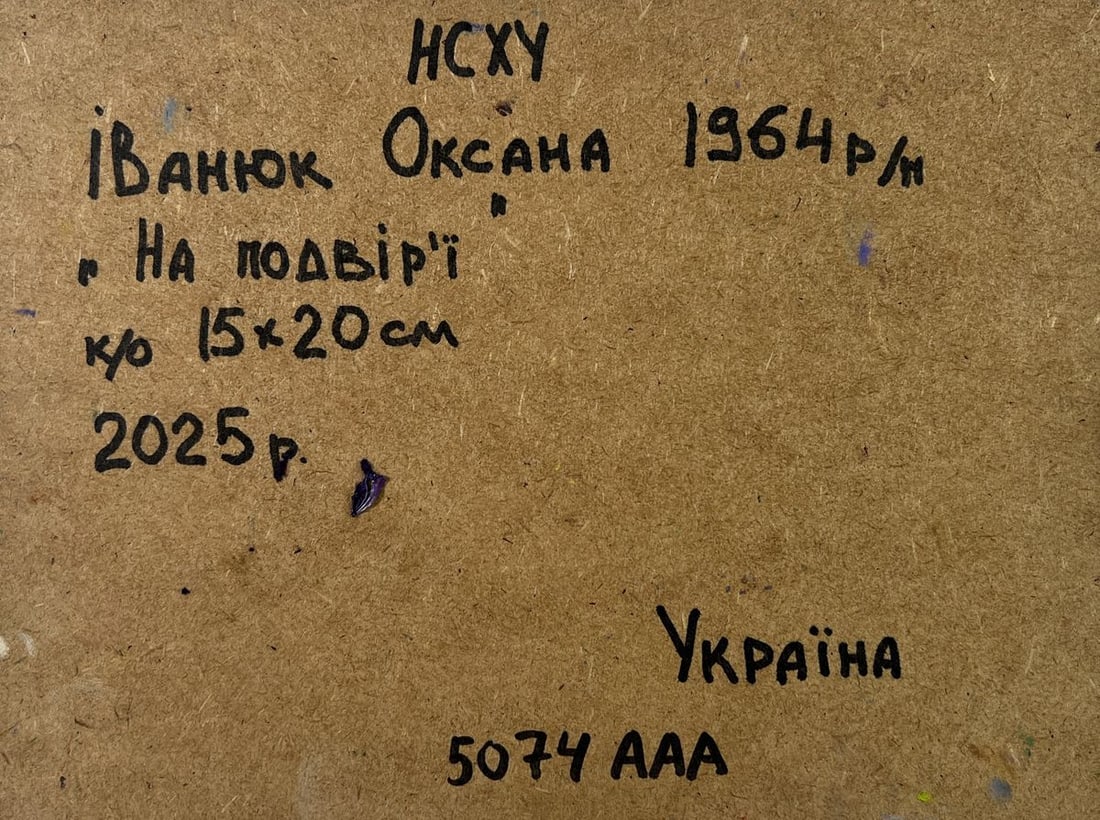 НСХУ
Іванюк Оксана 1964 р/н
„На подвір'ї"
к/о 15х20 см
2025 р.
Україна
5074 ААА